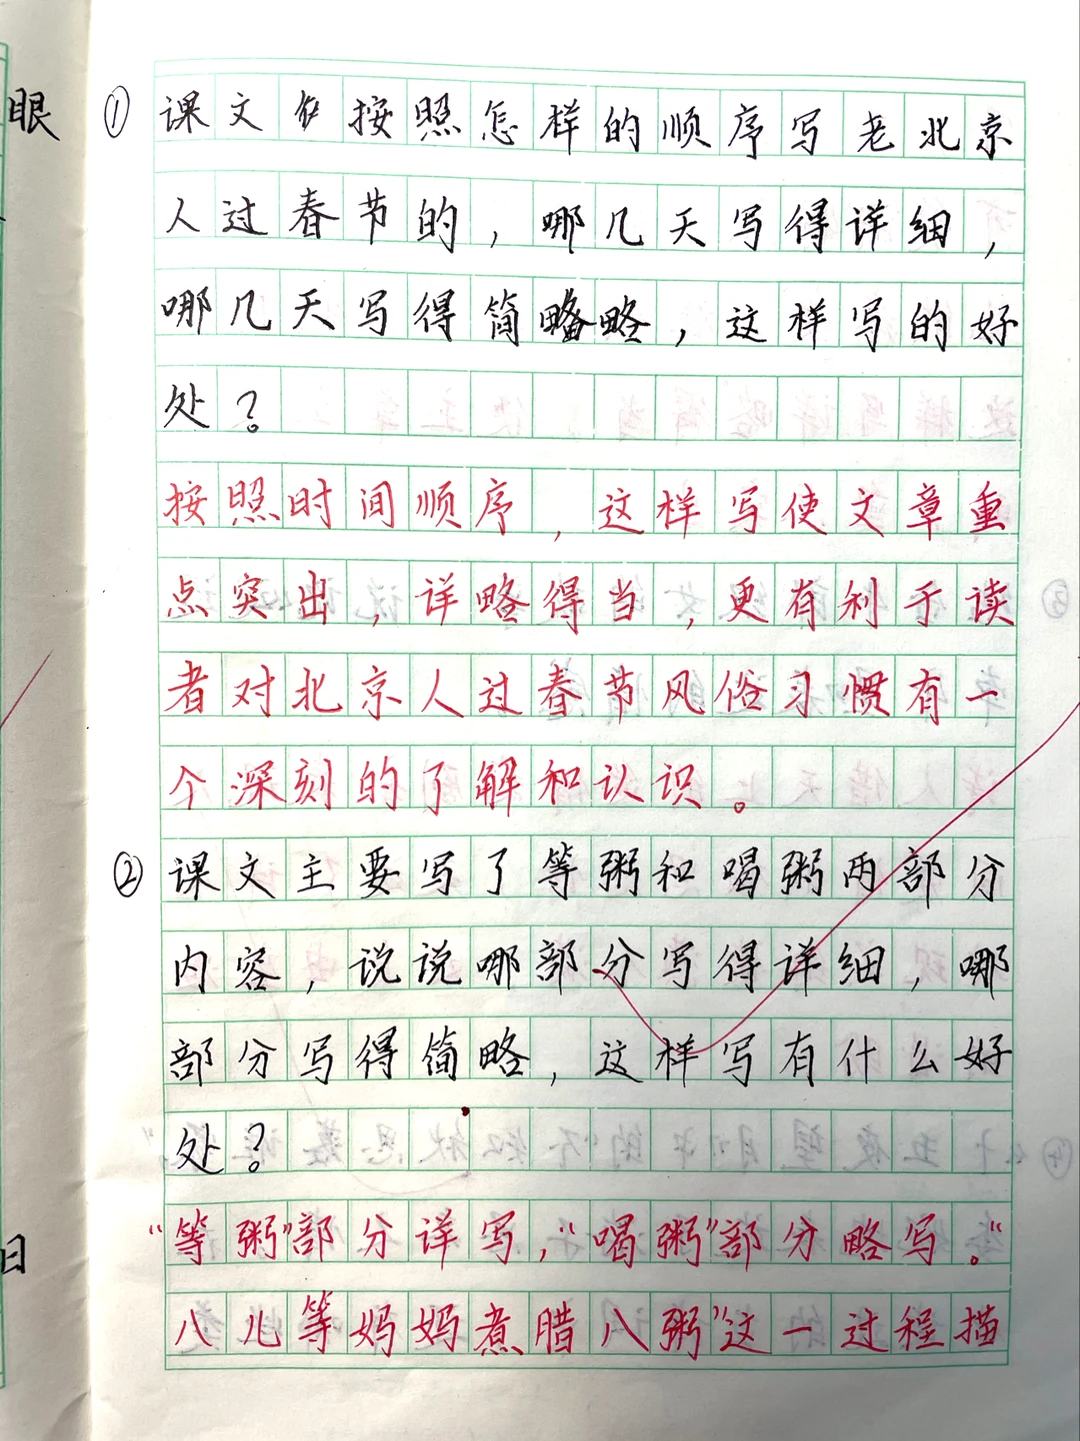 眼
① 课文按照怎样的顺序写老北京
人过春节的，哪几天写得详细，
哪几天写得简略，这样写的好
处？
按照时间顺序，这样写使文章重
点突出，详略得当，更有利于读
者对北京人过春节风俗习惯有一
个深刻的了解和认识。
② 课文主要写了等粥和喝粥两部分
内容，说说哪部分写得详细，哪
部分写得简略，这样写有什么好
处？
“等粥”部分详写，“喝粥”部分略写。“
八儿等妈妈煮腊八粥”这一过程描
日